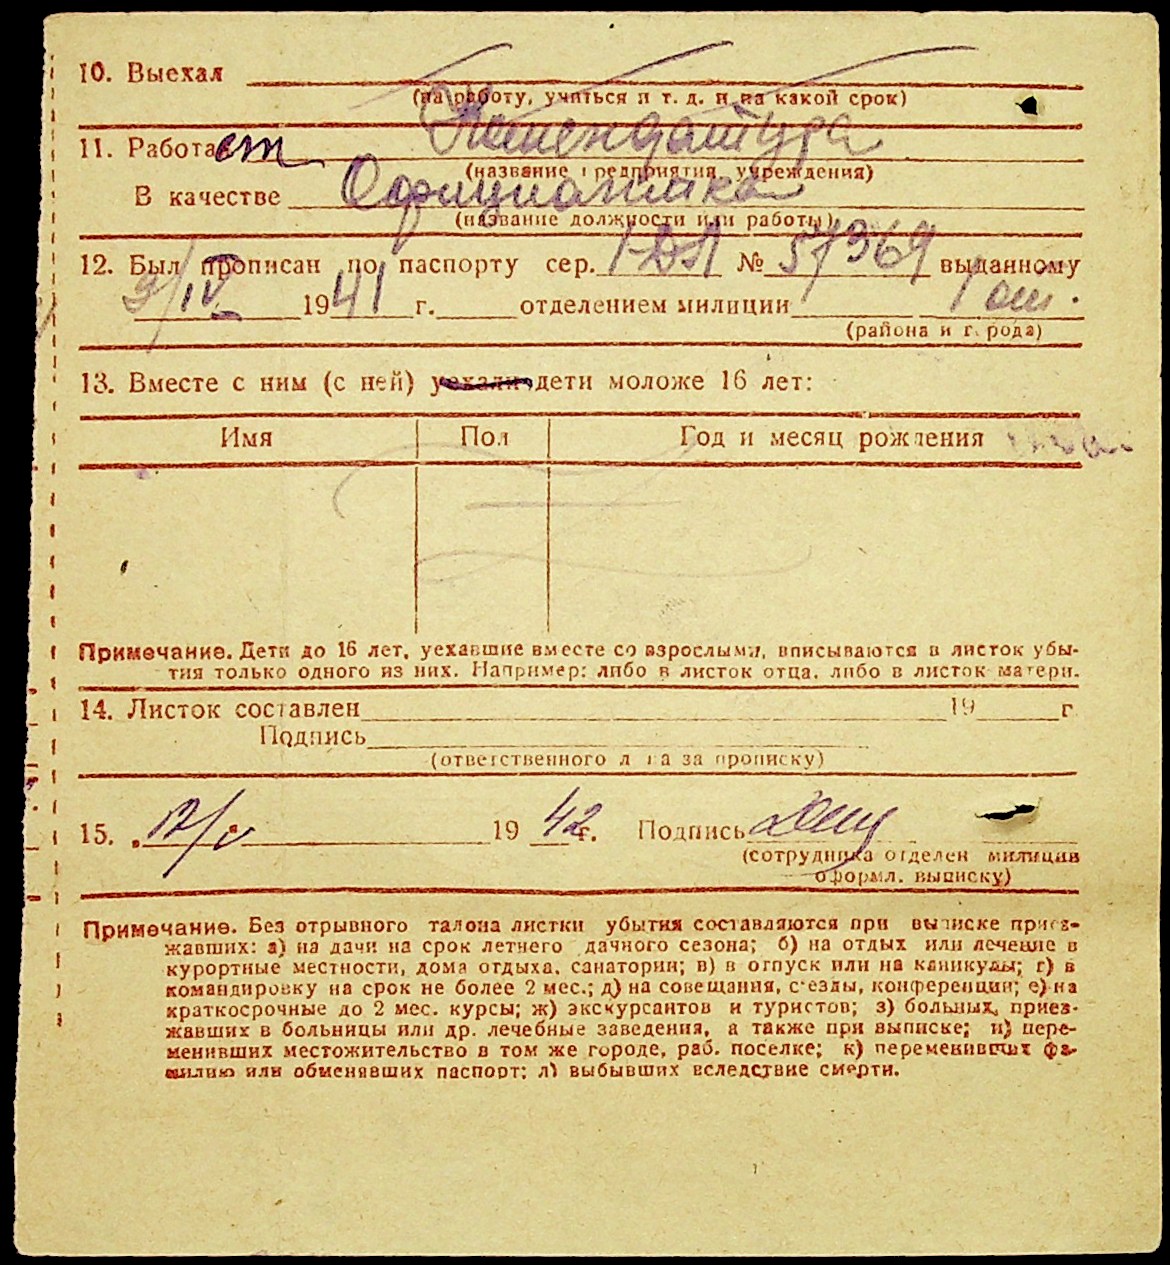 10. Выехал
(на работу, учиться и т. д. и на какой срок)
11. Работает Комендатура
(название предприятия, учреждения)
В качестве Официантка
(название должности или работы)
12. Был прописан по паспорту сер. I-ДЛ № 57369 выданному
9/IV 1941 г. отделением милиции 1 от.
(района и города)
13. Вместе с ним (с ней) уехали дети моложе 16 лет:
Имя Пол Год и месяц рождения
Примечание. Дети до 16 лет, уехавшие вместе со взрослыми, вписываются в листок убы-
тия только одного из них. Например: либо в листок отца, либо в листок матери.
14. Листок составлен 19 г
Подпись
(ответственного лица за прописку)
15. 12/V 1942 г. Подпись
(сотрудника отделен милиции
оформл. выписку)
Примечание. Без отрывного талона листки убытия составляются при выписке приез-
жавших: а) на дачи на срок летнего дачного сезона; б) на отдых или лечение в
курортные местности, дома отдыха, санатории; в) в отпуск или на каникулы; г) в
командировку на срок не более 2 мес.; д) на совещания, с'езды, конференции; е) на
краткосрочные до 2 мес. курсы; ж) экскурсантов и туристов; з) больных, приез-
жавших в больницы или др. лечебные заведения, а также при выписке; и) пере-
менивших местожительство в том же городе, раб. поселке; к) переменивших фа-
милию или обменявших паспорт; л) выбывших вследствие смерти.